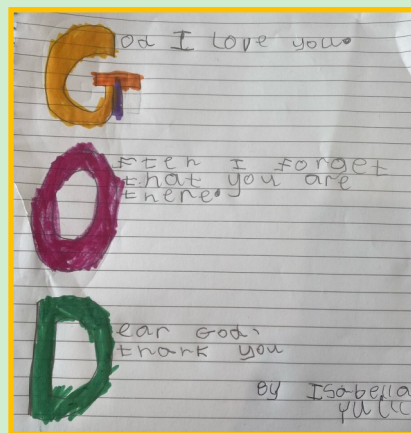 God I Love you.
Often I forget
that you are
there.
Dear God,
thank you
By Isabella